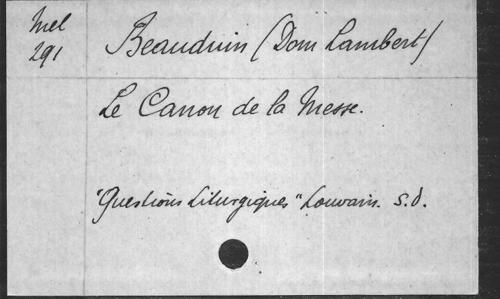 Mel
291
Beauduin (Dom Lambert)
Le Canon de la Messe.
"Questions Liturgiques" Louvain. s.d.